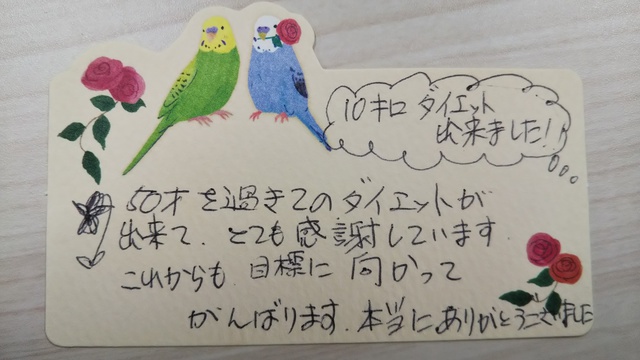 10キロ ダイエット
出来ました!
50才を過ぎてのダイエットが
出来て、とても感謝しています。
これからも、目標に向かって
がんばります。本当にありがとうございました